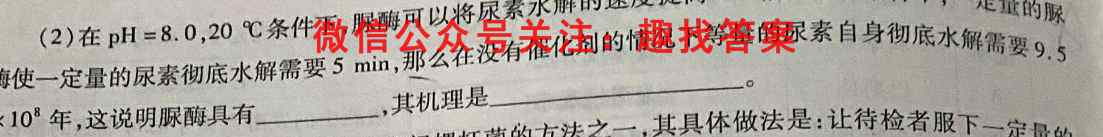 (2)在 pH=8.0,20 ℃条件下,脲酶可以将尿素水解的速度提高 定量的脲
微信公众号关注:趣找答案
酶使一定量的尿素彻底水解需要5 min,那么在没有催化剂的情况下等量的尿素自身彻底水解需要9.5
×10⁸ 年,这说明脲酶具有__________,其机理是____________________。
菌的方法之一,其具体做法是:让待检者服下一定量的